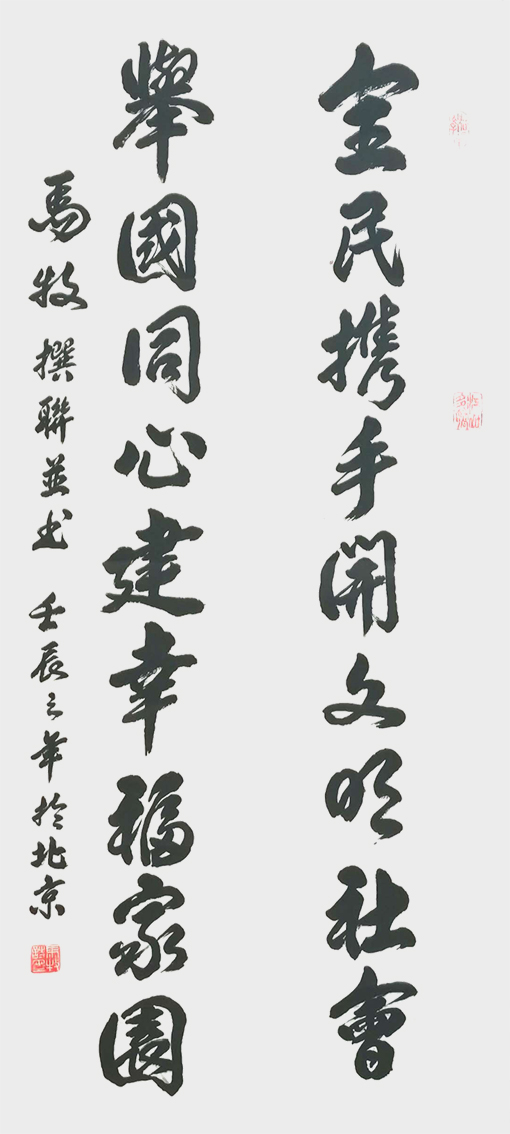 全民携手開文明社會
舉國同心建幸福家園
馬牧撰聯並书 壬辰之年於北京